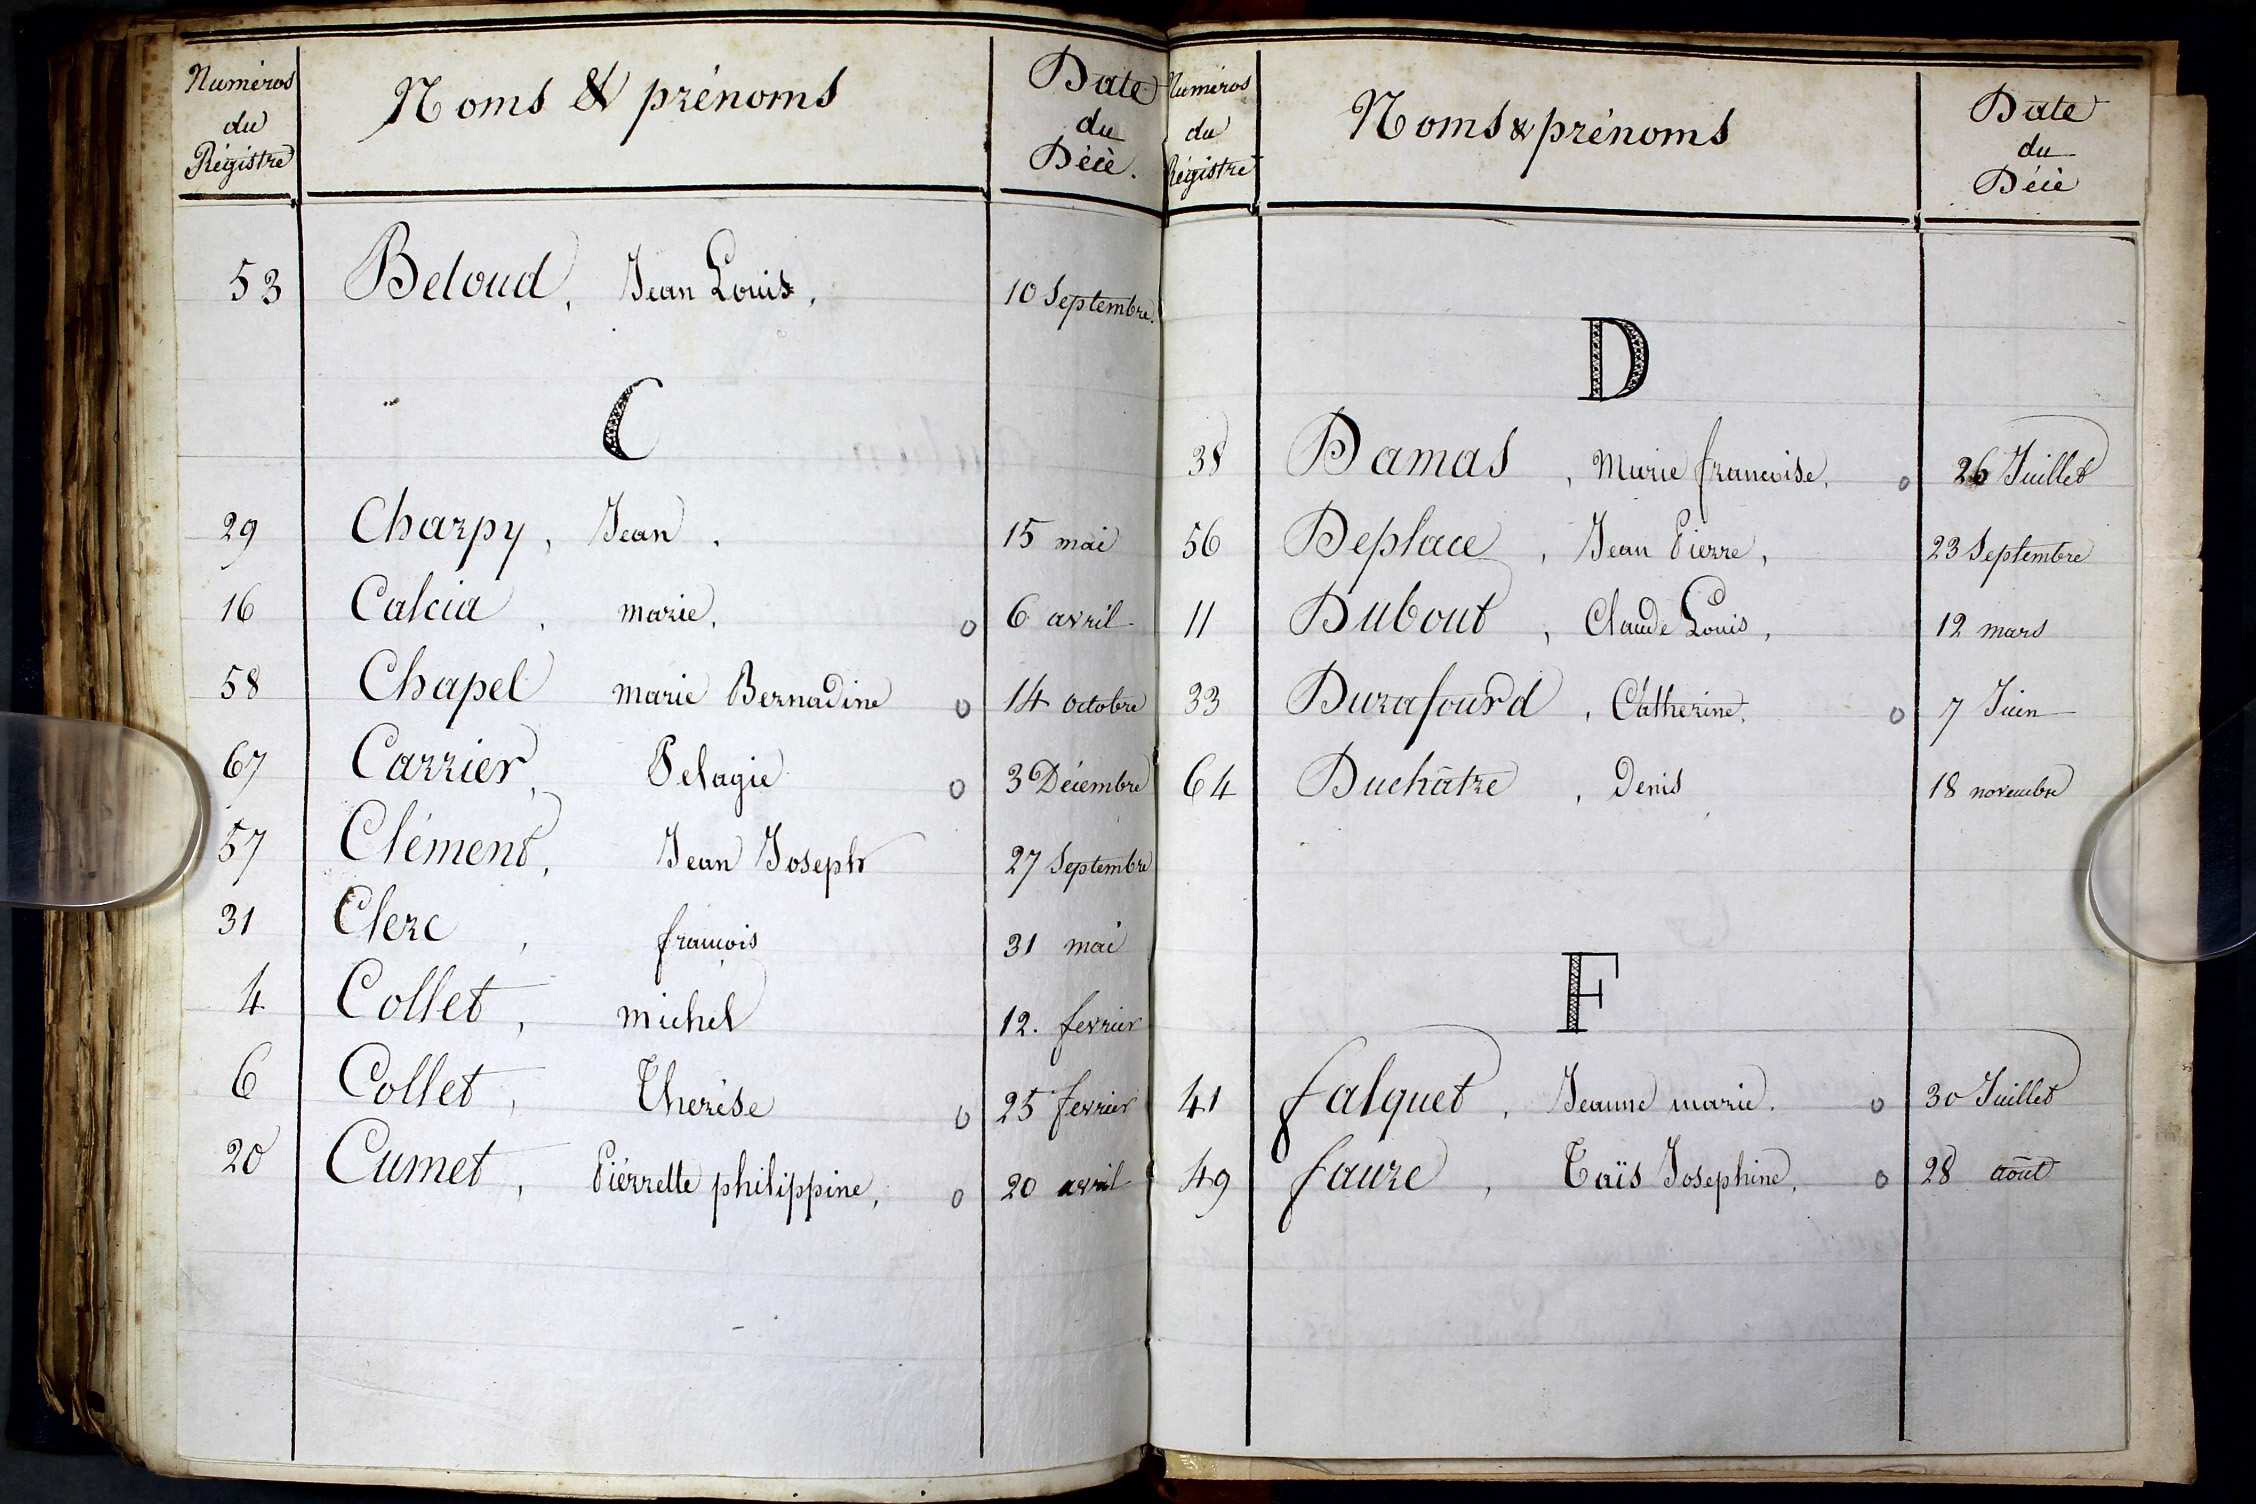 Numéros
du
Régistre
Noms & prénoms
Date
du
Décè.
53 Beloud, Jean Louis, 10 Septembre.
C
29 Charpy, Jean. 15 mai
16 Calcia, marie, o 6 avril
58 Chapel marie Bernadine o 14 octobre
67 Carrier, Pelagie o 3 Décembre
57 Clément, Jean Joseph 27 Septembre
31 Clerc, françois 31 mai
4 Collet, michel 12. fevrier
6 Collet, Therése o 25 fevrier
20 Cumet, Piérrette philippine, o 20 avril
Numéros
du
Régistre
Noms & prénoms
Date
du
Décè
D
38 Damas, Marie francoise, o 26 Juillet
56 Deplace, Jean Pierre, 23 Septembre
11 Dubout, Claude Louis, 12 mars
33 Durafourd, Catherine, o 7 Juin
64 Duchâtre, Denis 18 novembre
F
41 falquet, Jeanne marie. o 30 Juillet
49 faure, Taïs Josephine, o 28 août